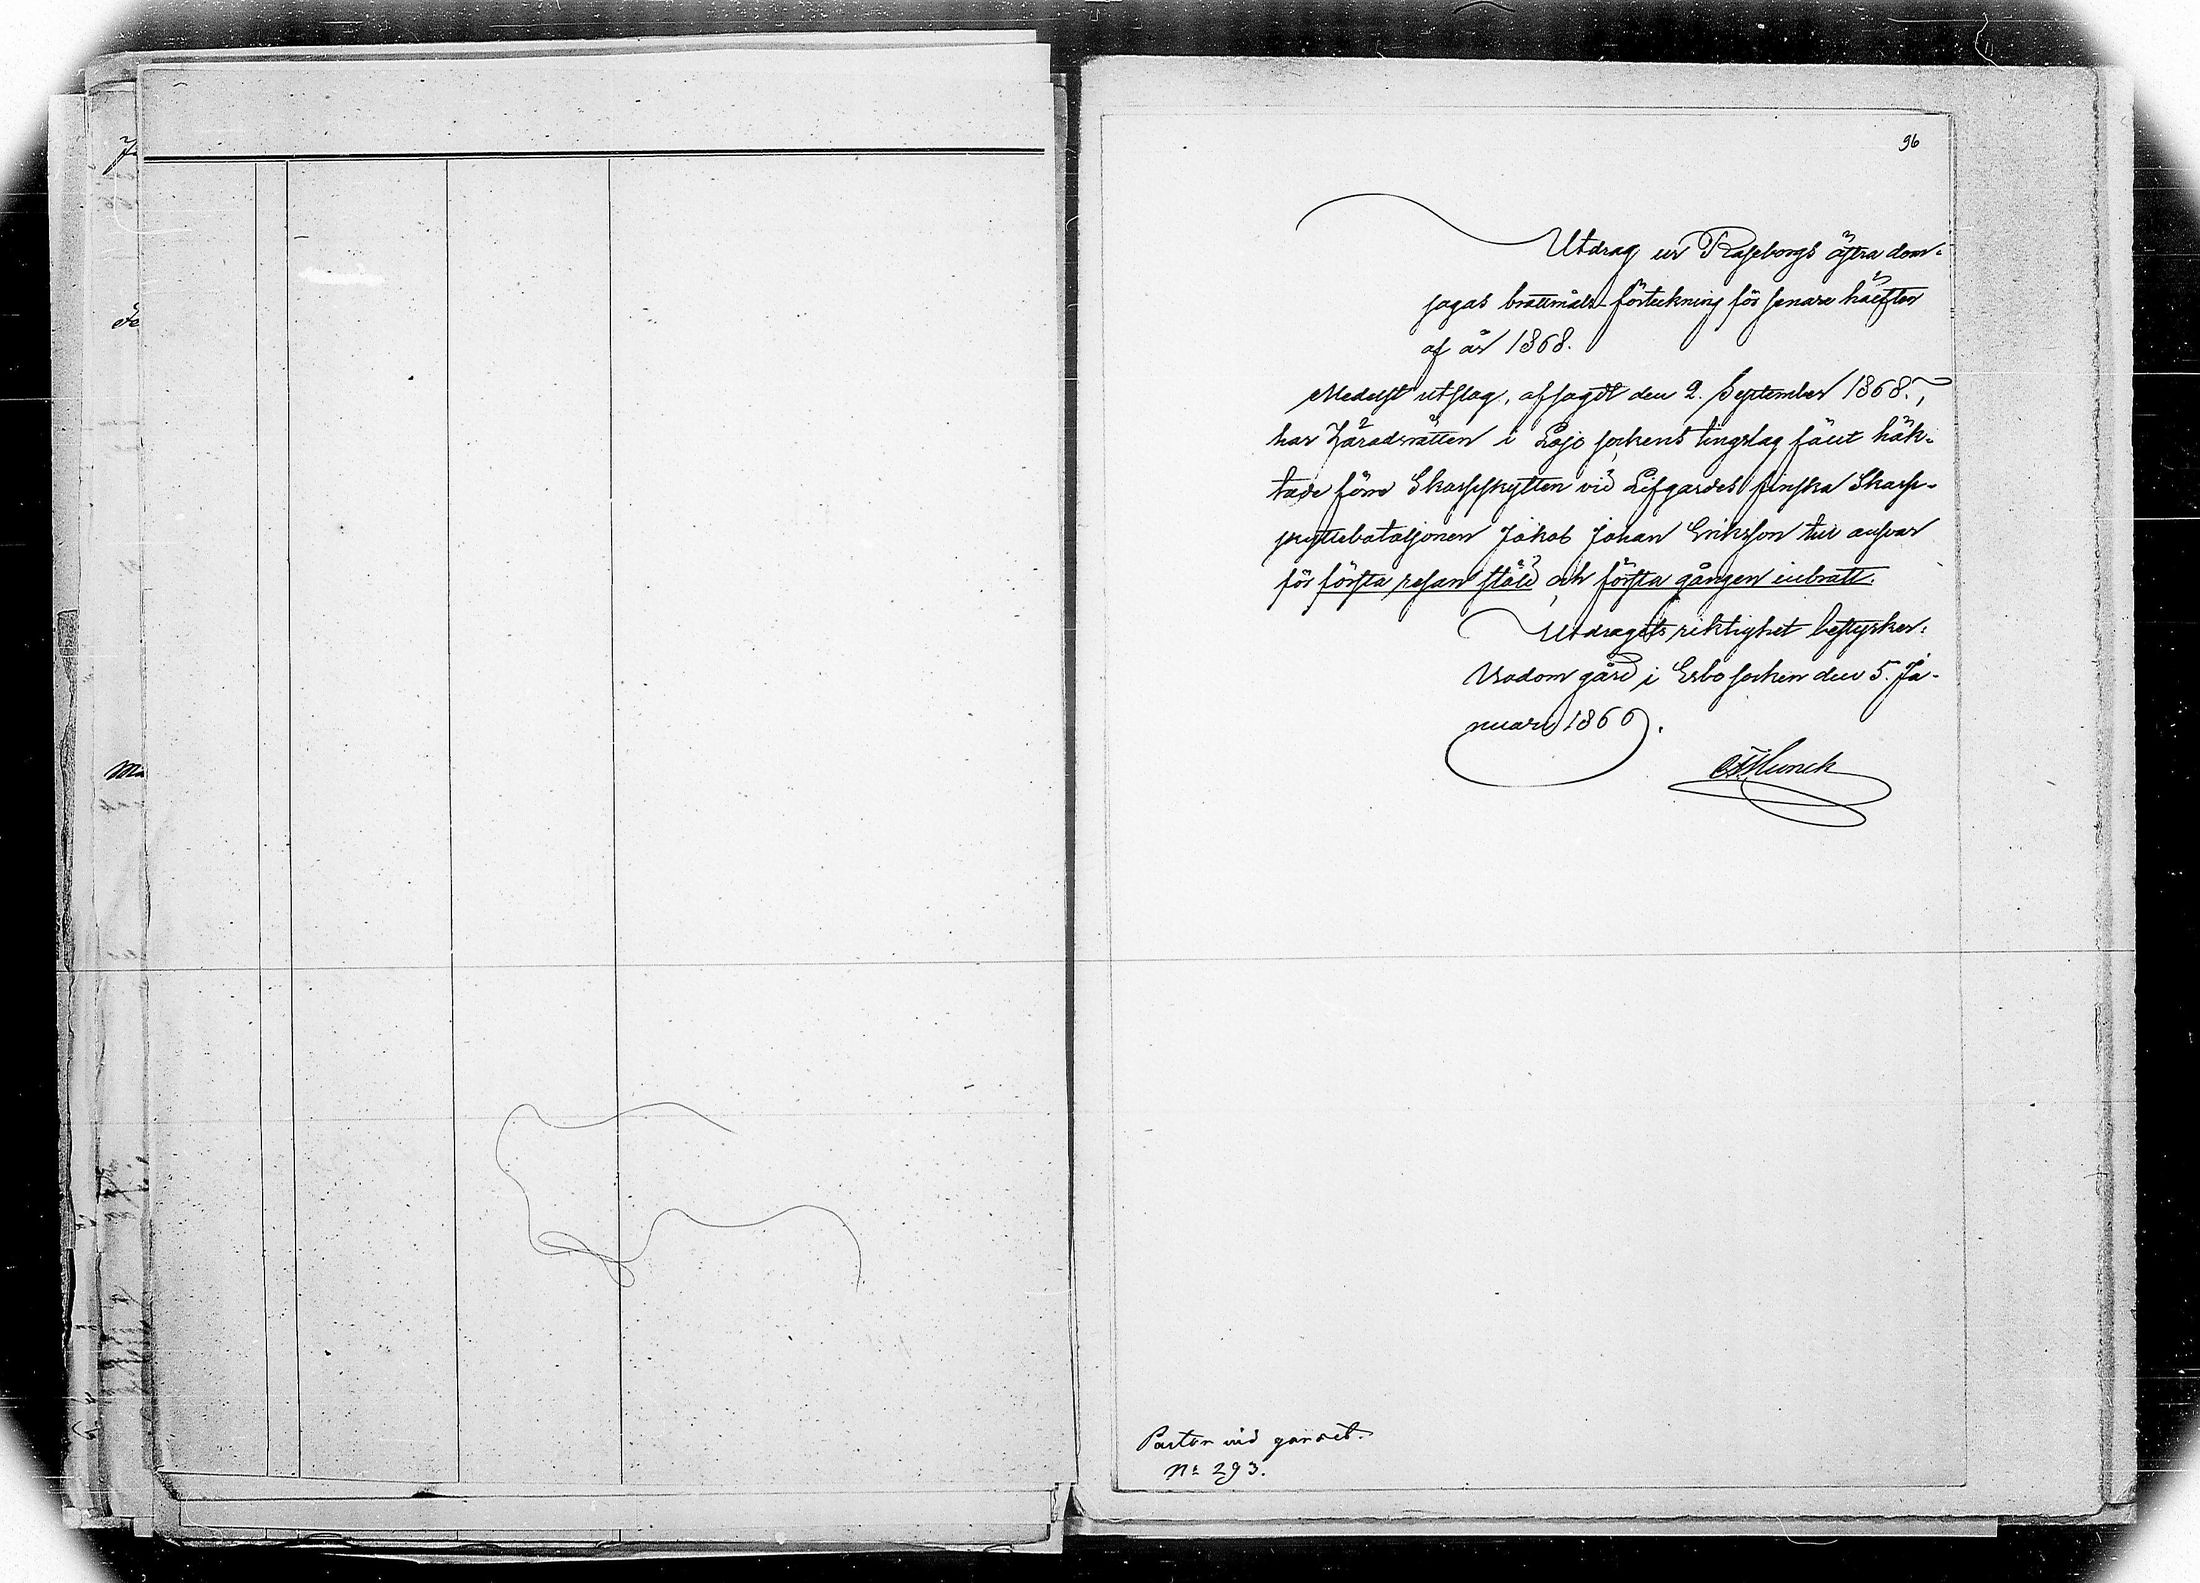 96
Utdrag ur Raseborgs östra dom-
sagas brottmåls-förteckning för senare hälften
af år 1868.
Medelst utslag, afsagdt den 2. September 1868.,
har Häradsrätten i Lojo sockens tingslag fällt häk-
tade förre Skarpskytten vid Lifgardets finska Skarp-
skyttebataljonen Jakob Johan Eriksson till ansvar
för första resan stöld och första gången inbrott.
Utdragets riktighet bestyrker:
Bodom gård i Esbo socken den 5. Ja-
nuari 1869.
Munck
Pastorn vid gardet.
No 293.